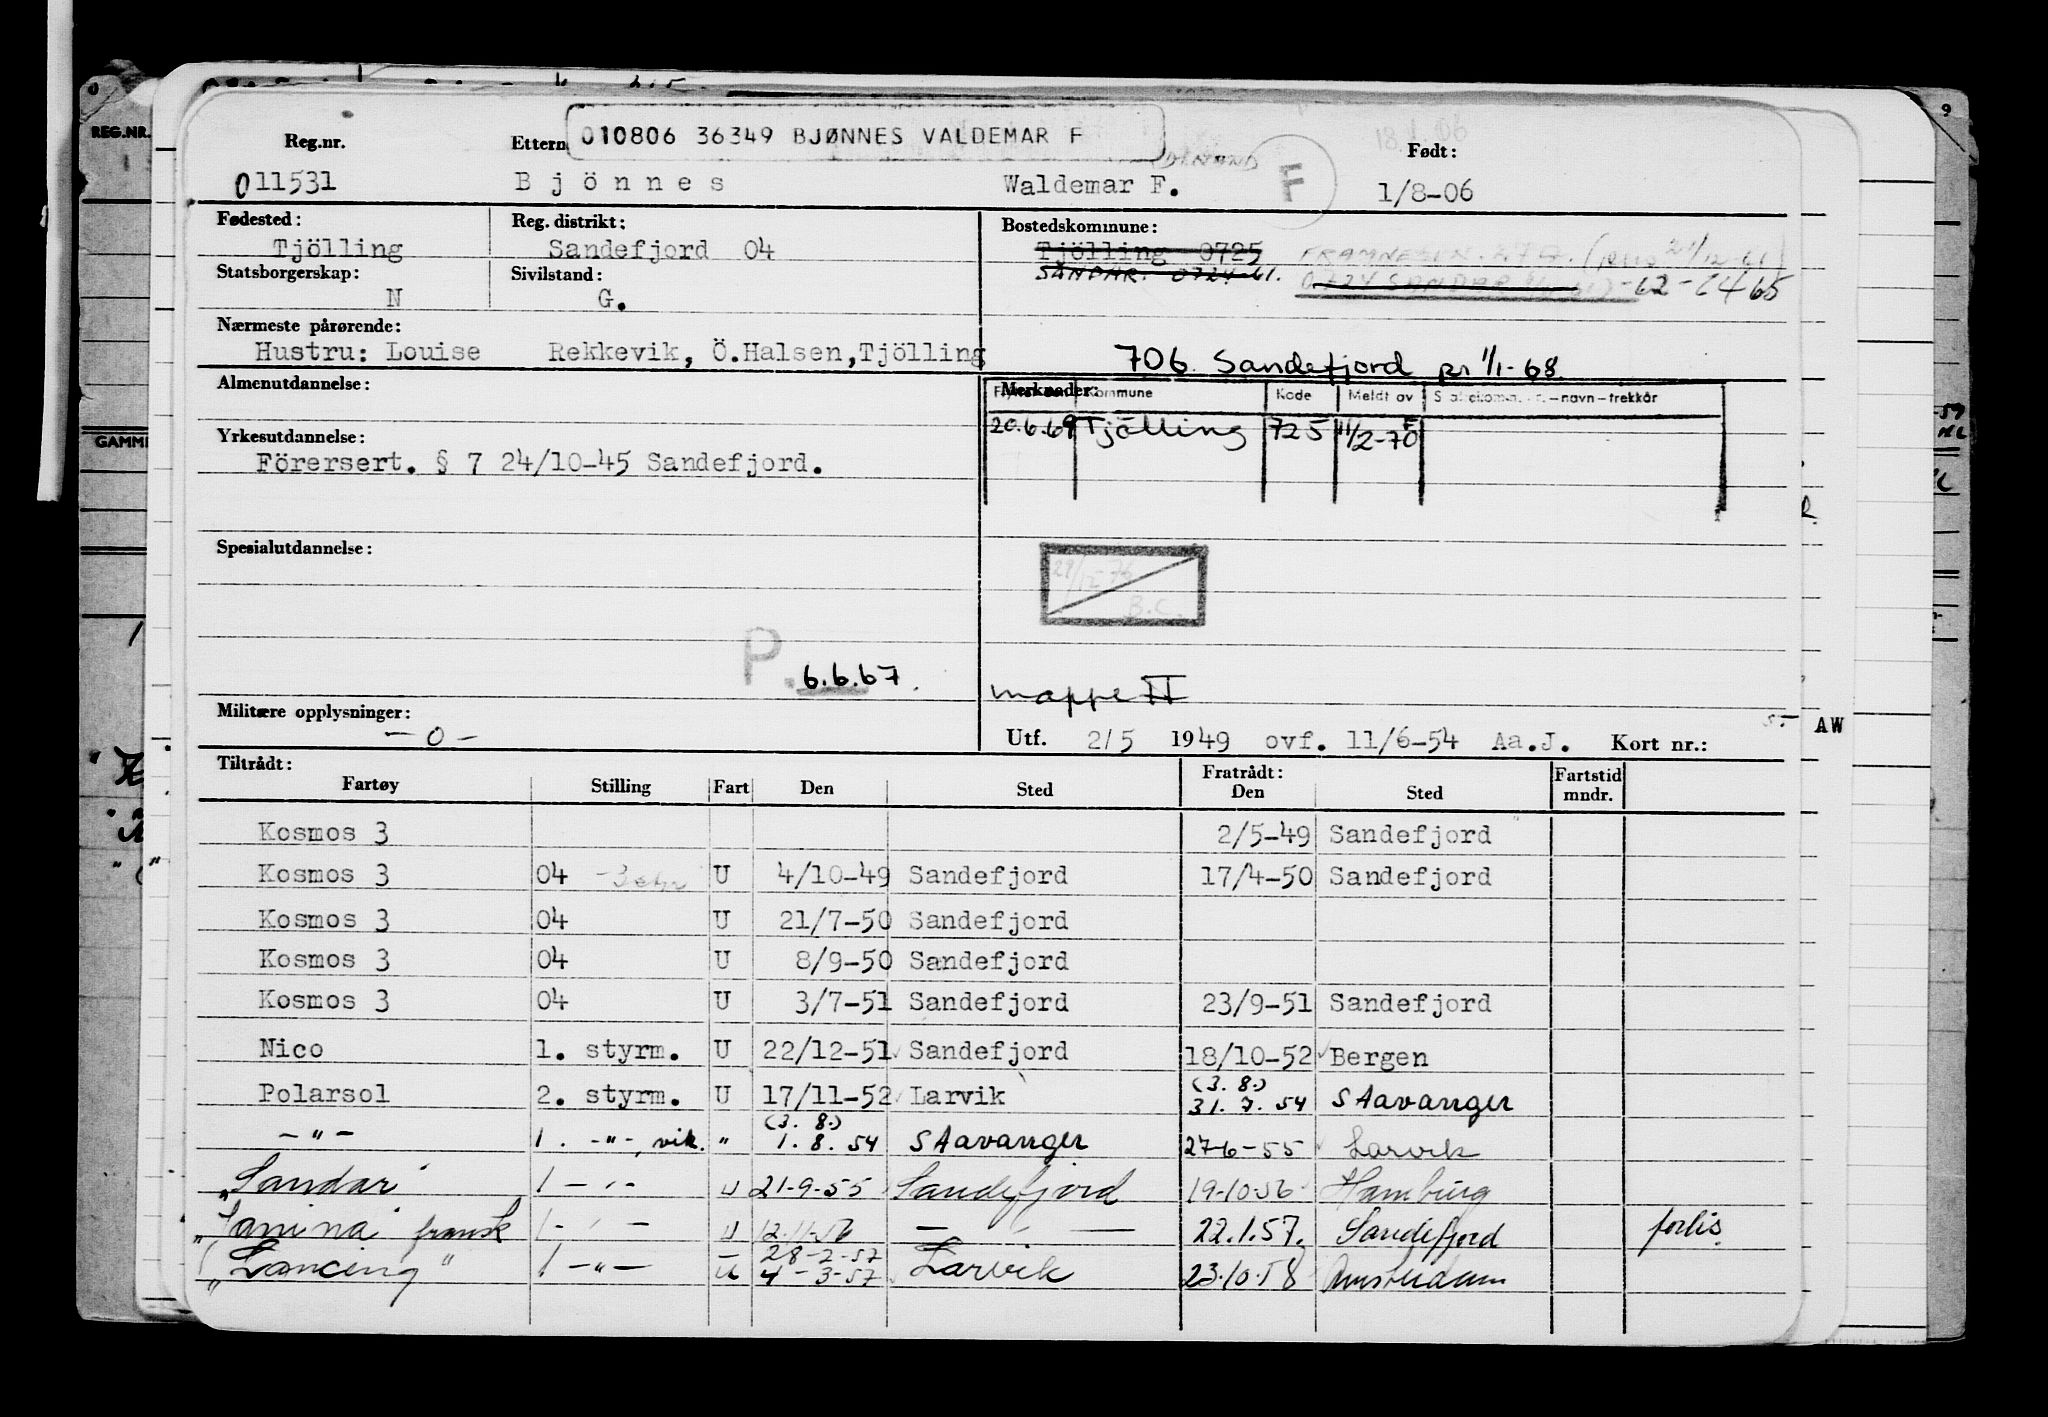 010806 36349 BJØNNES VALDEMAR F
Reg.nr. Født:
011531 Bjönnes Waldemar F. F 1/8-06
Fødested: Reg. distrikt: Bostedskommune:
Tjölling Sandefjord 04 Tjölling 0725
Statsborgerskap: Sivilstand: SANDAR. 0724-61.
N G. 0724 SANDAR -62-64 65
Nærmeste pårørende:
Hustru: Louise Rekkevik, Ö.Halsen,Tjölling
706. Sandefjord pr 1/1-68.
Almenutdannelse: Merknader:
Kommune Kode Meldt av -navn-trekkår
20.6.69 Tjölling 725 11/2-70
Yrkesutdannelse:
Förersert. § 7 24/10-45 Sandefjord.
Spesialutdannelse:
B.C.
P. 6.6.67.
mappe II
Militære opplysninger:
-0-
Utf. 2/5 1949 ovf. 11/6-54 Aa.J. Kort nr.:
AW
Tiltrådt: Fratrådt: Fartstid
Fartøy Stilling Fart Den Sted Den Sted mndr.
Kosmos 3 2/5-49 Sandefjord
Kosmos 3 04 U 4/10-49 Sandefjord 17/4-50 Sandefjord
Kosmos 3 04 U 21/7-50 Sandefjord
Kosmos 3 04 U 8/9-50 Sandefjord
Kosmos 3 04 U 3/7-51 Sandefjord 23/9-51 Sandefjord
Nico 1. styrm. U 22/12-51 Sandefjord 18/10-52 Bergen
Polarsol 2. styrm. U 17/11-52 Larvik (3. 8.) 31. 7. 54 Stavanger
-"- 1. -"-, vik. " (3. 8.) 1. 8. 54 Stavanger 27-6-55 Larvik
"Sandar" 1 -"- U 21-9-55 Sandefjord 19-10-56 Hamburg
"Janina" fransk 1 -"- U 12.11-56 -"- 22.1.57. Sandefjord forlis.
28-2-57
"Lancing" 1 -"- U 4-3-57 Larvik 23.10.58 Amsterdam
REG.NR.